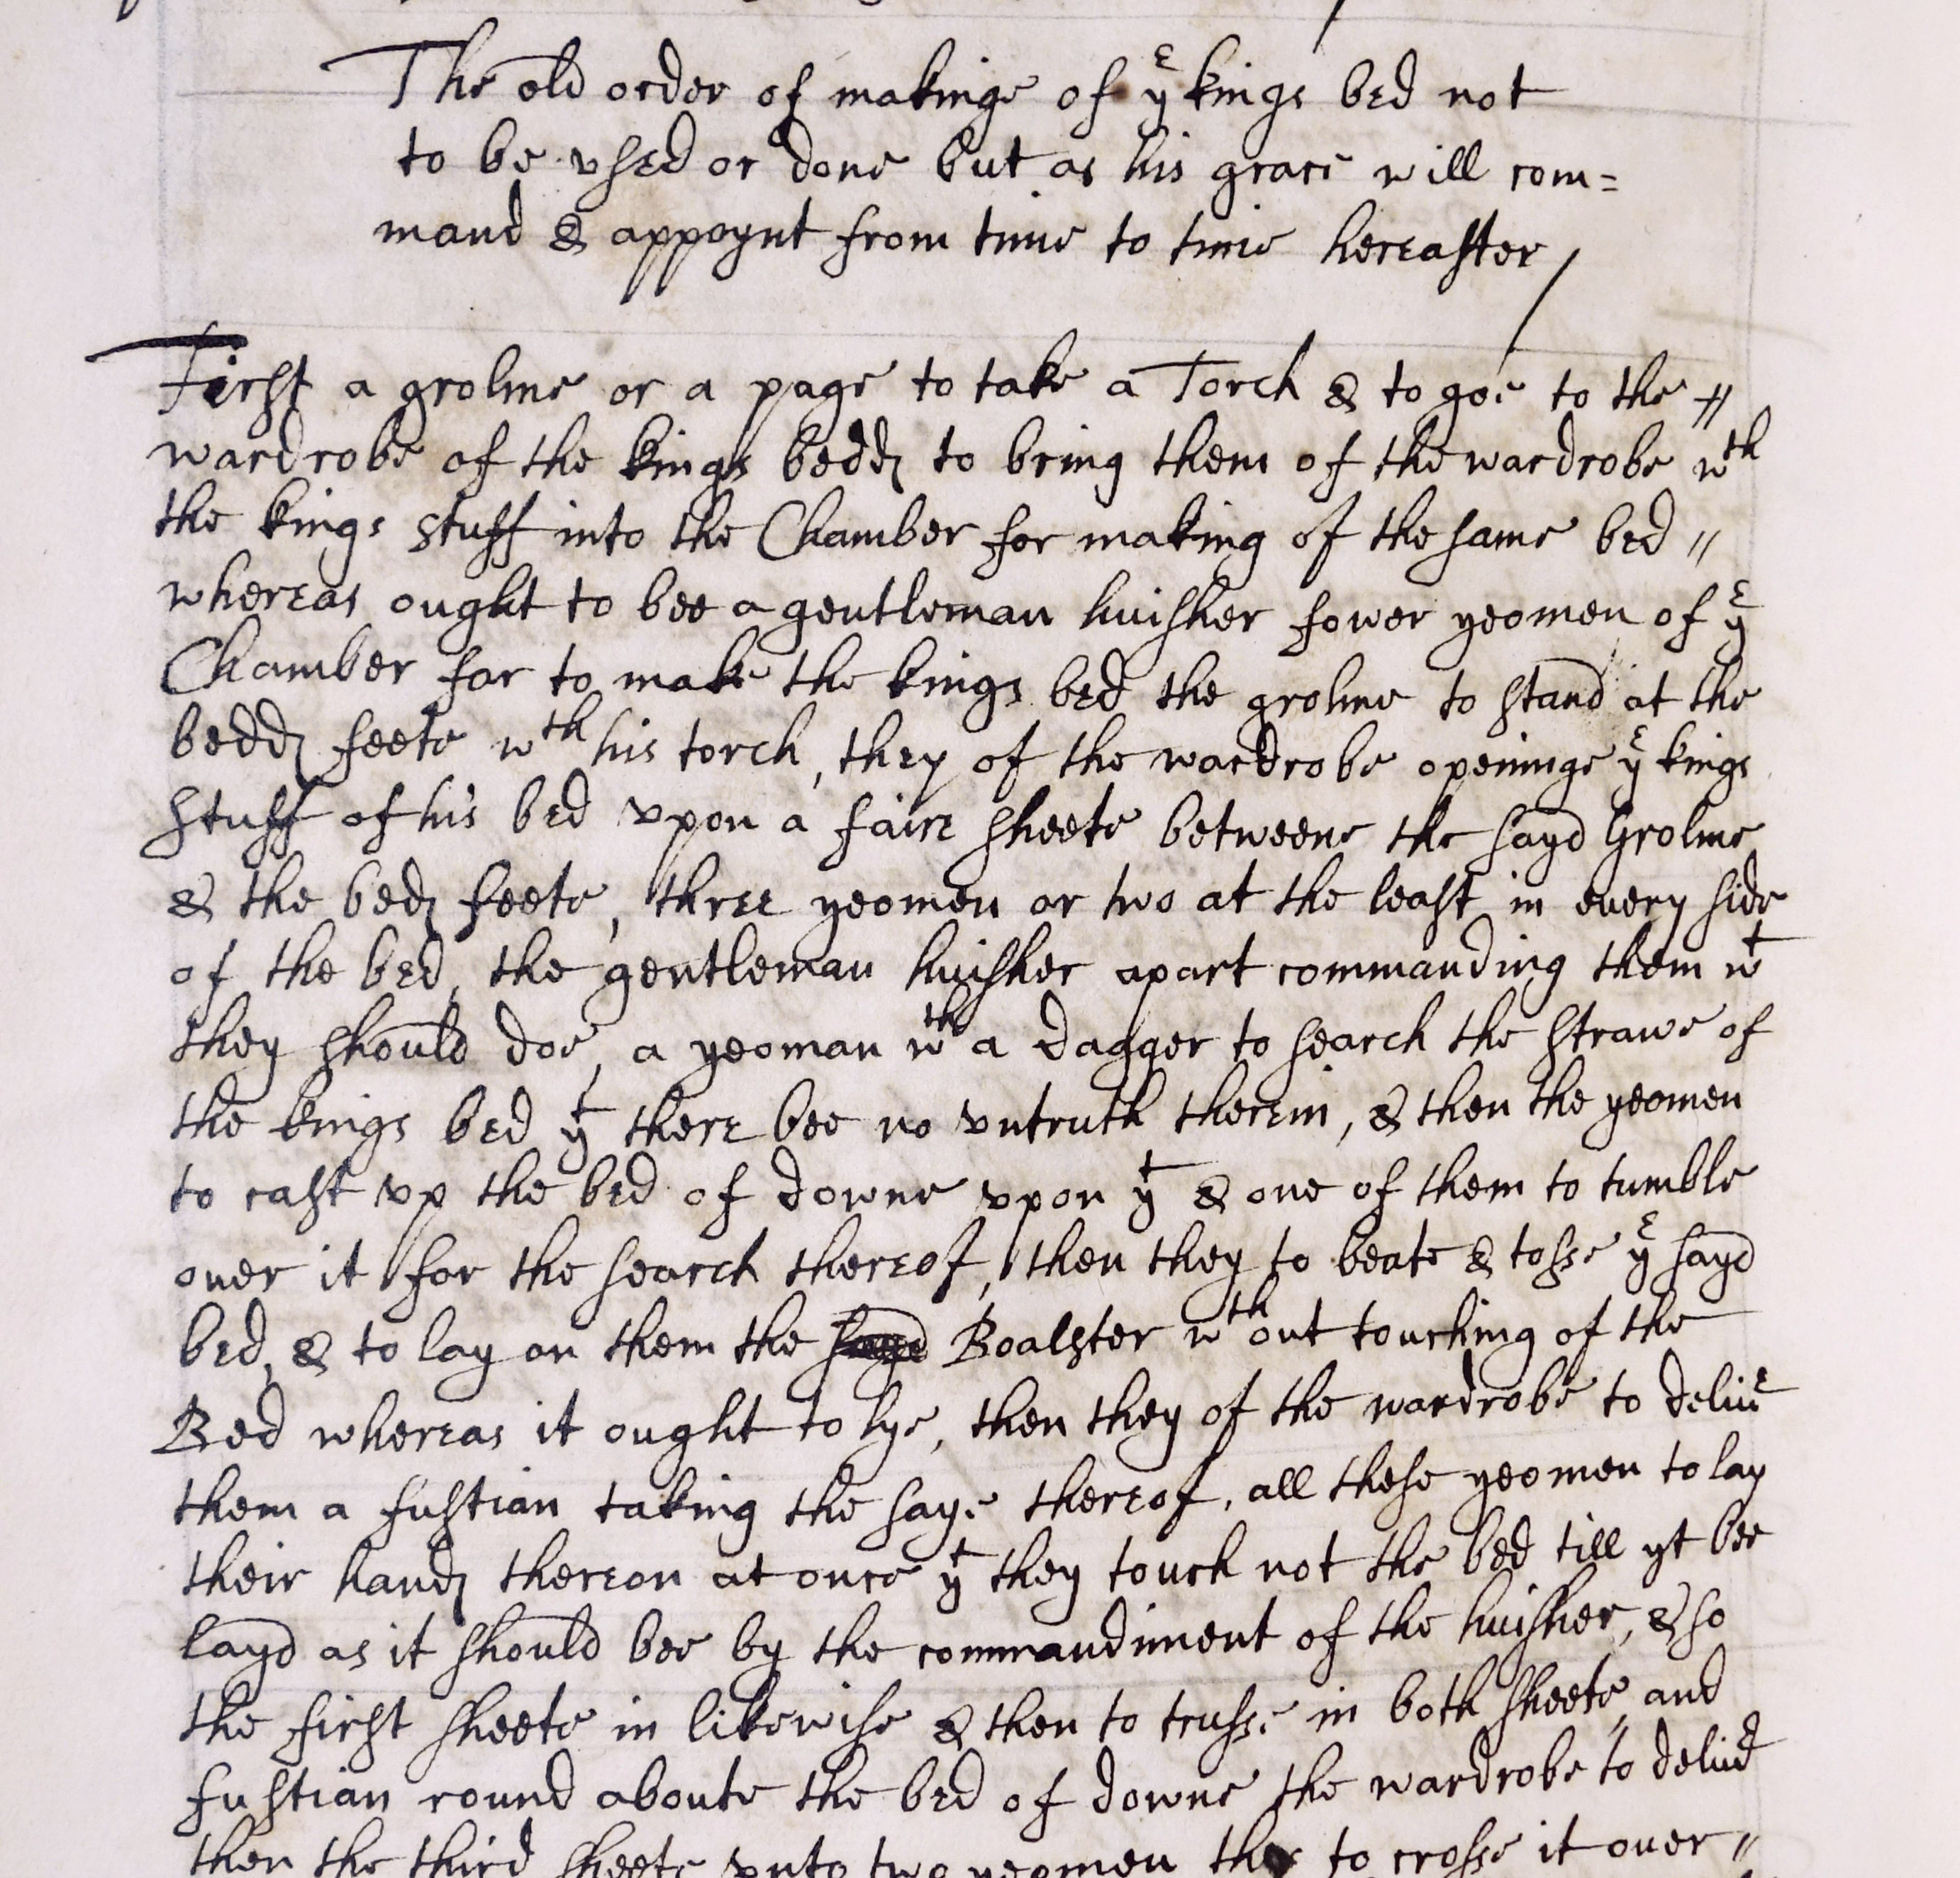 The old order of makinge of yᵉ kings bed not
to be vsed or done but as his grace will com=
mand & appoynt from time to time hereafter /
First a grolme or a page to take a Torch & to goe to the //
wardrobe of the kings bedds to bring them of the wardrobe wᵗʰ
the kings stuff into the Chamber for making of the same bed //
whereas ought to bee a gentleman huisher fower yeomen of yᵉ
Chamber for to make the kings bed the grolme to stand at the
bedds feete wᵗʰ his torch, they of the wardrobe openinge yᵉ kings
stuff of his bed vpon a faire sheete betweene the sayd Grolme
& the beds feete, three yeomen or two at the least in euery side
of the bed, the gentleman huisher apart commanding them wᵗ
they should doe, a yeoman wᵗʰ a dagger to search the strawe of
the kings bed yᵗ there bee no vntruth therein, & then the yeomen
to cast vp the bed of downe vpon yᵗ & one of them to tumble
ouer it for the search thereof, then they to beate & tosse yᵉ sayd
bed, & to lay on them the sayd Boalster wᵗʰout touching of the
Bed whereas it ought to lye, then they of the wardrobe to deliuᵉ
them a fustian taking the saye thereof, all these yeomen to lay
their hands thereon at once yᵗ they touch not the bed till yt bee
layd as it should bee by the commandiment of the huisher, & so
the first sheete in likewise & then to trusse in both sheete, and
fustian round aboute the bed of downe, the wardrobe to deliuᵉ
then the third sheete vnto two yeomen they to crosse it ouer //